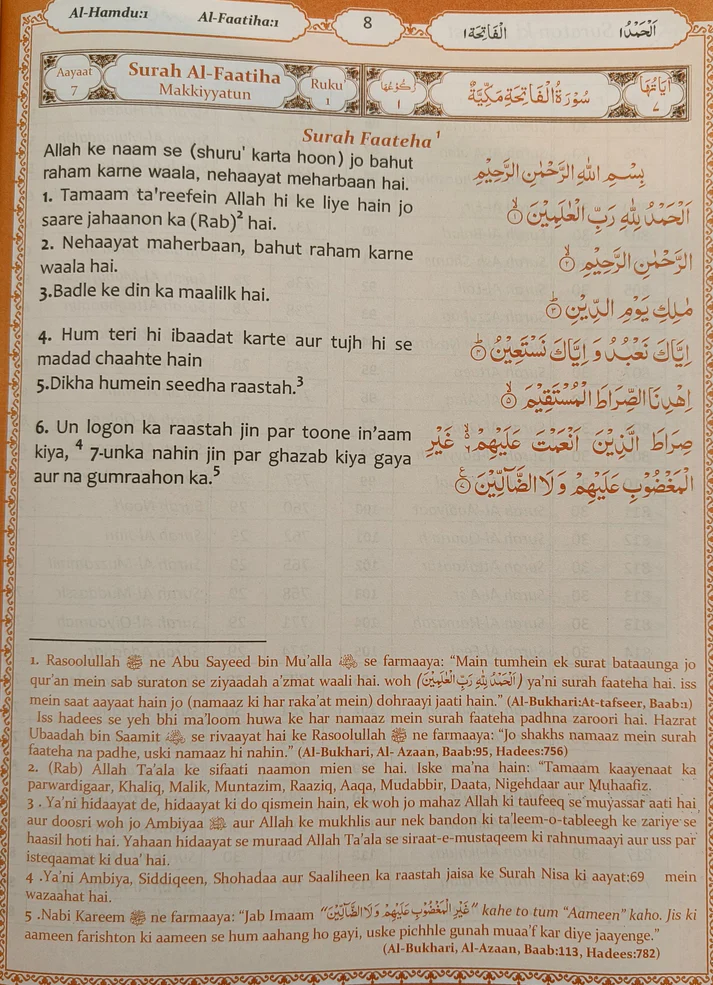 Al-Hamdu:1
Al-Faatiha:1
8
اَلْفَاتِحَة ١
اَلْحَمْدُ ١
Aayaat
7
Surah Al-Faatiha
Makkiyyatun
Ruku'
1
رُكُوْعُهَا
١
سُوْرَةُ الْفَاتِحَةِ مَكِّيَّةٌ
اٰيَاتُهَا
٧
Surah Faateha¹
Allah ke naam se (shuru' karta hoon) jo bahut
raham karne waala, nehaayat meharbaan hai.
1. Tamaam ta'reefein Allah hi ke liye hain jo
saare jahaanon ka (Rab)² hai.
2. Nehaayat maherbaan, bahut raham karne
waala hai.
3.Badle ke din ka maalilk hai.
4. Hum teri hi ibaadat karte aur tujh hi se
madad chaahte hain
5.Dikha humein seedha raastah.³
6. Un logon ka raastah jin par toone in'aam
kiya, ⁴ 7-unka nahin jin par ghazab kiya gaya
aur na gumraahon ka.⁵
بِسْمِ اللّٰهِ الرَّحْمٰنِ الرَّحِيْمِ
اَلْحَمْدُ لِلّٰهِ رَبِّ الْعٰلَمِيْنَ ۙ﴿١﴾
الرَّحْمٰنِ الرَّحِيْمِ ۙ﴿٢﴾
مٰلِكِ يَوْمِ الدِّيْنِ ؕ﴿٣﴾
اِيَّاكَ نَعْبُدُ وَ اِيَّاكَ نَسْتَعِيْنُ ؕ﴿٤﴾
اِهْدِنَا الصِّرَاطَ الْمُسْتَقِيْمَ ۙ﴿٥﴾
صِرَاطَ الَّذِيْنَ اَنْعَمْتَ عَلَيْهِمْ ۙ۬﴿٦﴾ غَيْرِ
الْمَغْضُوْبِ عَلَيْهِمْ وَ لَا الضَّآلِّيْنَ ﴿٧﴾
1. Rasoolullah ﷺ ne Abu Sayeed bin Mu'alla رضي الله عنه se farmaaya: "Main tumhein ek surat bataaunga jo
qur'an mein sab suraton se ziyaadah a'zmat waali hai. woh (اَلْحَمْدُ لِلّٰهِ رَبِّ الْعٰلَمِيْنَ) ya'ni surah faateha hai. iss
mein saat aayaat hain jo (namaaz ki har raka'at mein) dohraayi jaati hain." (Al-Bukhari:At-tafseer, Baab:1)
Iss hadees se yeh bhi ma'loom huwa ke har namaaz mein surah faateha padhna zaroori hai. Hazrat
Ubaadah bin Saamit رضي الله عنه se rivaayat hai ke Rasoolullah ﷺ ne farmaaya: "Jo shakhs namaaz mein surah
faateha na padhe, uski namaaz hi nahin." (Al-Bukhari, Al- Azaan, Baab:95, Hadees:756)
2. (Rab) Allah Ta'ala ke sifaati naamon mien se hai. Iske ma'na hain: "Tamaam kaayenaat ka
parwardigaar, Khaliq, Malik, Muntazim, Raaziq, Aaqa, Mudabbir, Daata, Nigehdaar aur Muhaafiz.
3 . Ya'ni hidaayat de, hidaayat ki do qismein hain, ek woh jo mahaz Allah ki taufeeq se muyassar aati hai
aur doosri woh jo Ambiyaa عليهم السلام aur Allah ke mukhlis aur nek bandon ki ta'leem-o-tableegh ke zariye se
haasil hoti hai. Yahaan hidaayat se muraad Allah Ta'ala se siraat-e-mustaqeem ki rahnumaayi aur uss par
isteqaamat ki dua' hai.
4 .Ya'ni Ambiya, Siddiqeen, Shohadaa aur Saaliheen ka raastah jaisa ke Surah Nisa ki aayat:69 mein
wazaahat hai.
5 .Nabi Kareem ﷺ ne farmaaya: "Jab Imaam "غَيْرِ الْمَغْضُوْبِ عَلَيْهِمْ وَلَا الضَّآلِّيْنَ" kahe to tum "Aameen" kaho. Jis ki
aameen farishton ki aameen se hum aahang ho gayi, uske pichhle gunah muaa'f kar diye jaayenge."
(Al-Bukhari, Al-Azaan, Baab:113, Hadees:782)